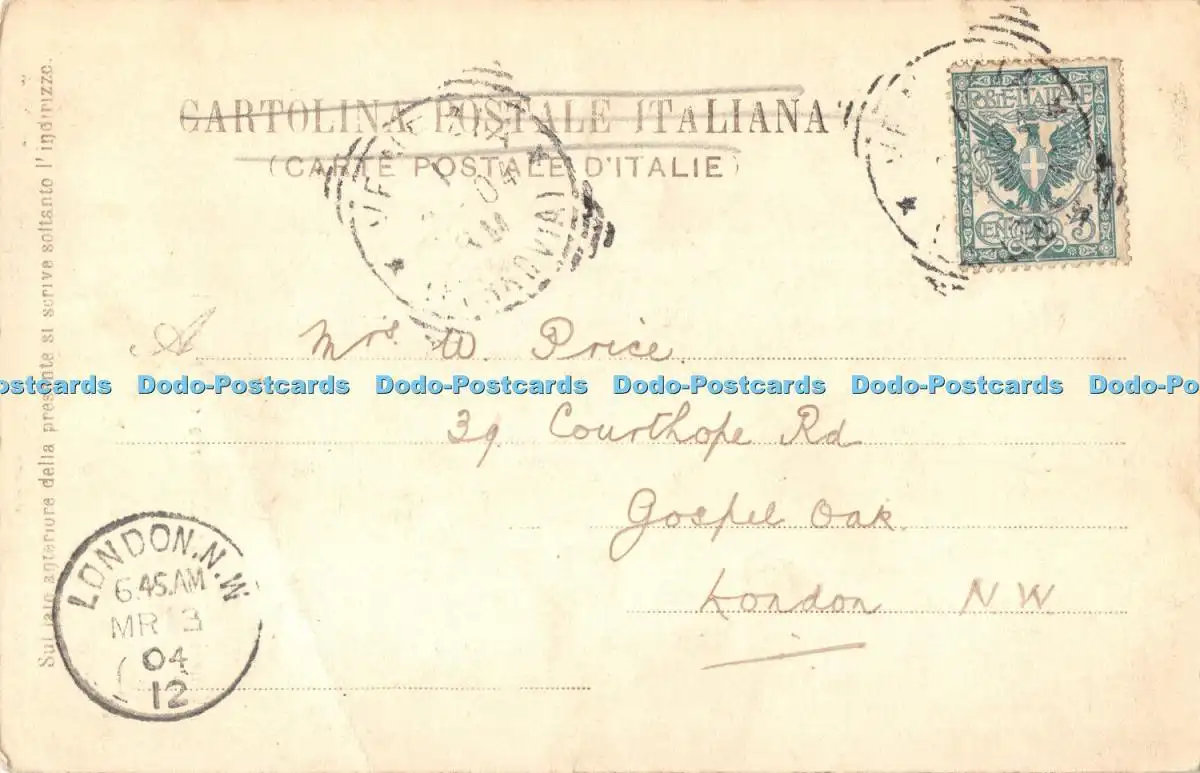 CARTOLINA POSTALE ITALIANA
(CARTE POSTALE D'ITALIE)
POSTE ITALIANE
CENT 5
A Mrs. W. Price
Dodo-Postcards Dodo-Postcards Dodo-Postcards Dodo-Postcards Dodo-Postcards
39 Courthope Rd
Gospel Oak
London N W
LONDON. N.W
6.45.AM
MR 3
04
12
Sul lato anteriore della presente si scrive soltanto l'indirizzo.